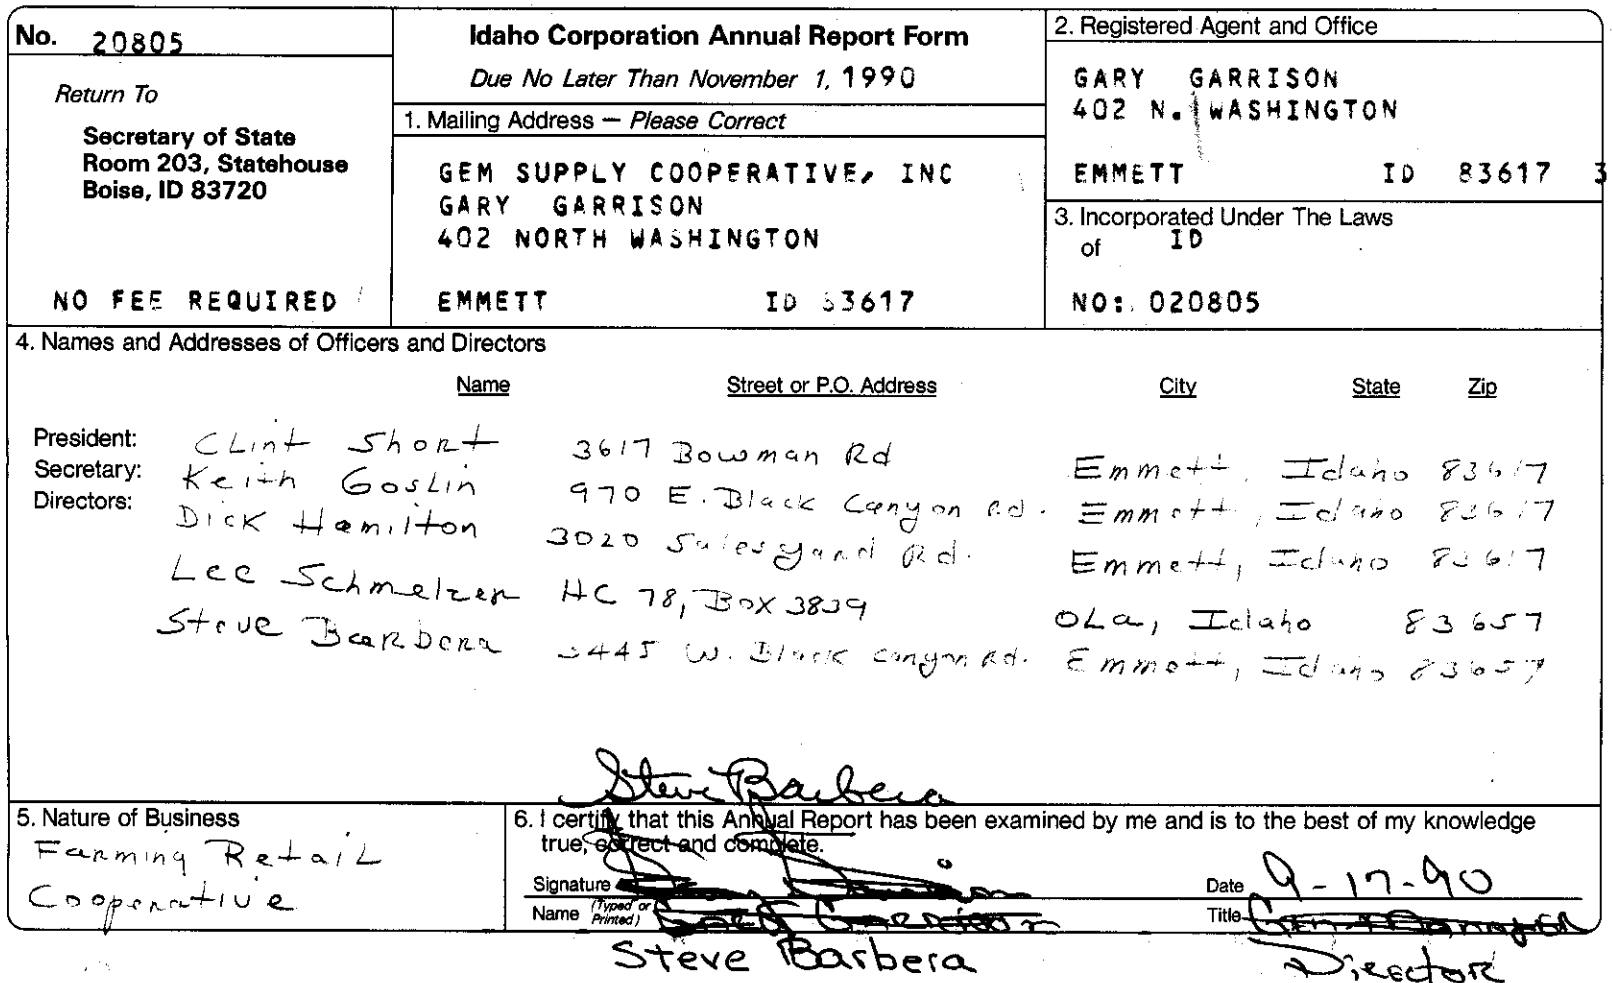 No. 20805
Return To
Secretary of State
Room 203, Statehouse
Boise, ID 83720
NO FEE REQUIRED
Idaho Corporation Annual Report Form
Due No Later Than November 1, 1990
1. Mailing Address — Please Correct
GEM SUPPLY COOPERATIVE, INC
GARY GARRISON
402 NORTH WASHINGTON
EMMETT ID 83617
2. Registered Agent and Office
GARY GARRISON
402 N. WASHINGTON
EMMETT ID 83617 3
3. Incorporated Under The Laws
of ID
NO: 020805
4. Names and Addresses of Officers and Directors
Name Street or P.O. Address City State Zip
President: Clint Short 3617 Bowman Rd Emmett, Idaho 83617
Secretary: Keith Goslin 970 E. Black Canyon Rd. Emmett, Idaho 83617
Directors: Dick Hamilton 3020 Salesyard Rd. Emmett, Idaho 83617
Lee Schmelzer HC 78, Box 3839 OLa, Idaho 83657
Steve Barbera 3445 W. Black Canyon Rd. Emmett, Idaho 83657
Steve Barbera
5. Nature of Business
Farming Retail
Cooperative
6. I certify that this Annual Report has been examined by me and is to the best of my knowledge
true, correct and complete.
Signature Date 9-17-90
Name (Typed or Printed) Gary Garrison Title Gen Manager
Steve Barbera Director